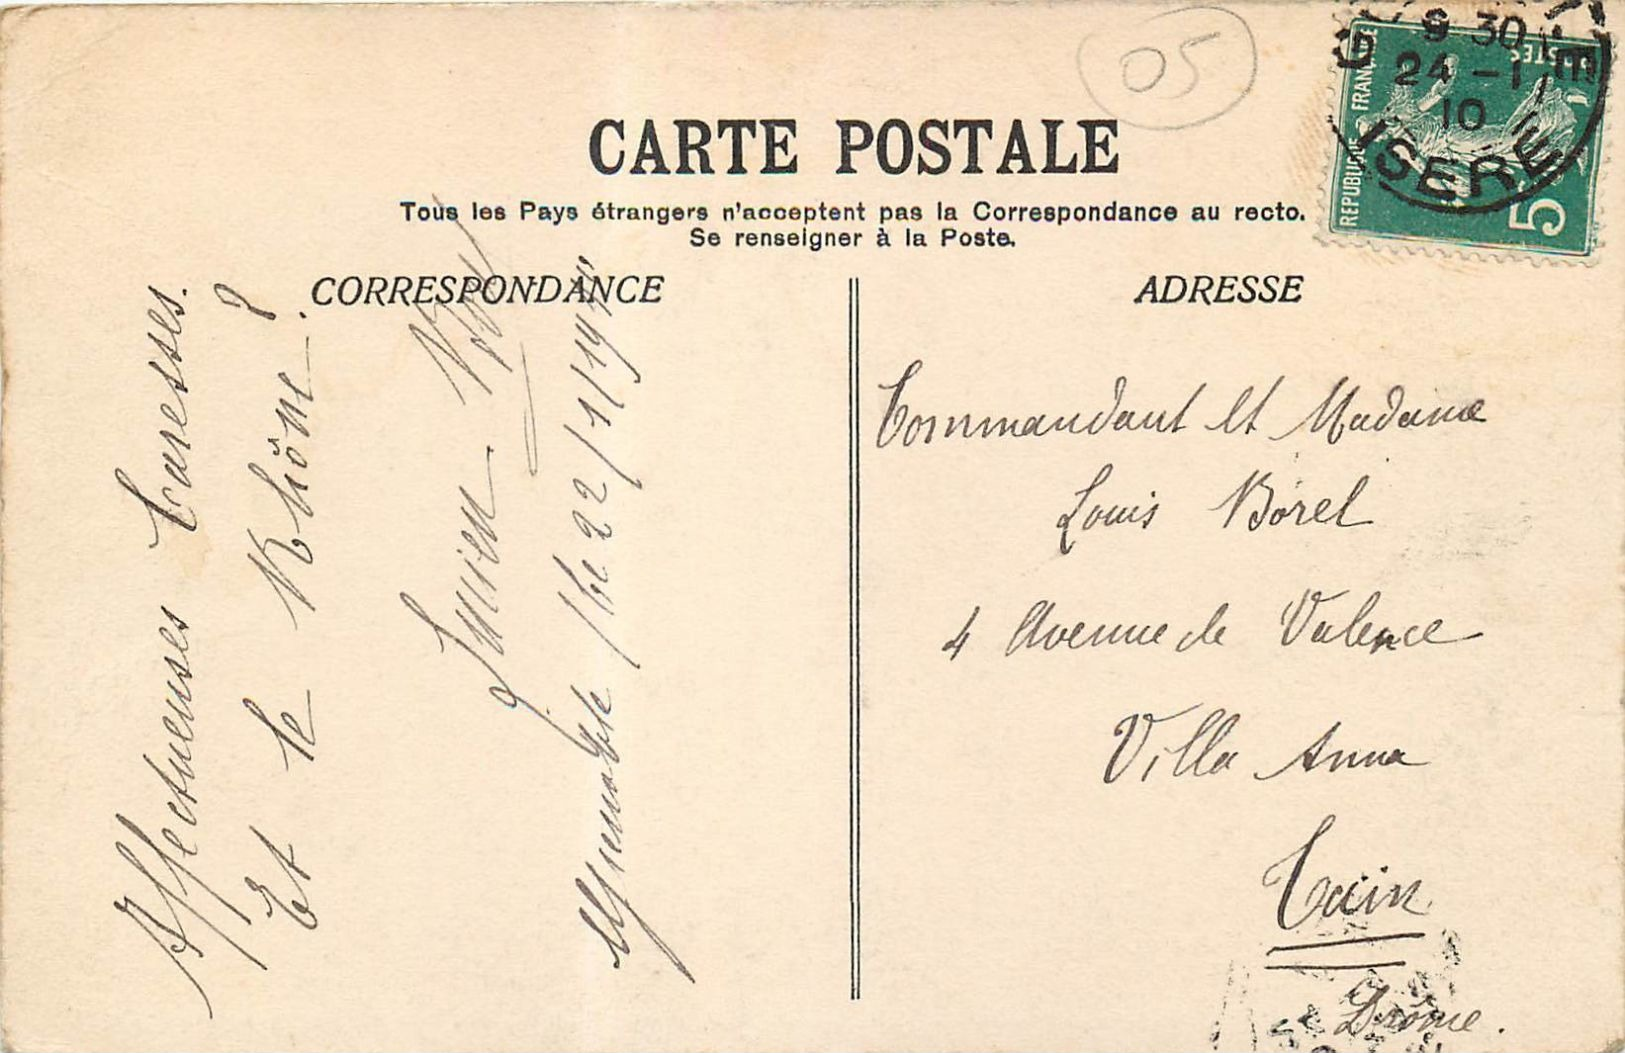 05
9 30
24 - 11
10
ISERE
REPUBLIQUE FRANÇAISE
POSTES
5
CARTE POSTALE
Tous les Pays étrangers n'acceptent pas la Correspondance au recto.
Se renseigner à la Poste.
CORRESPONDANCE
Affectueuses Caresses.
Et le Rhône ?
Lucien
le 22/11/19
ADRESSE
Commandant et Madame
Louis Borel
4 Avenue de Valence
Villa Anna
Tain
Drôme.